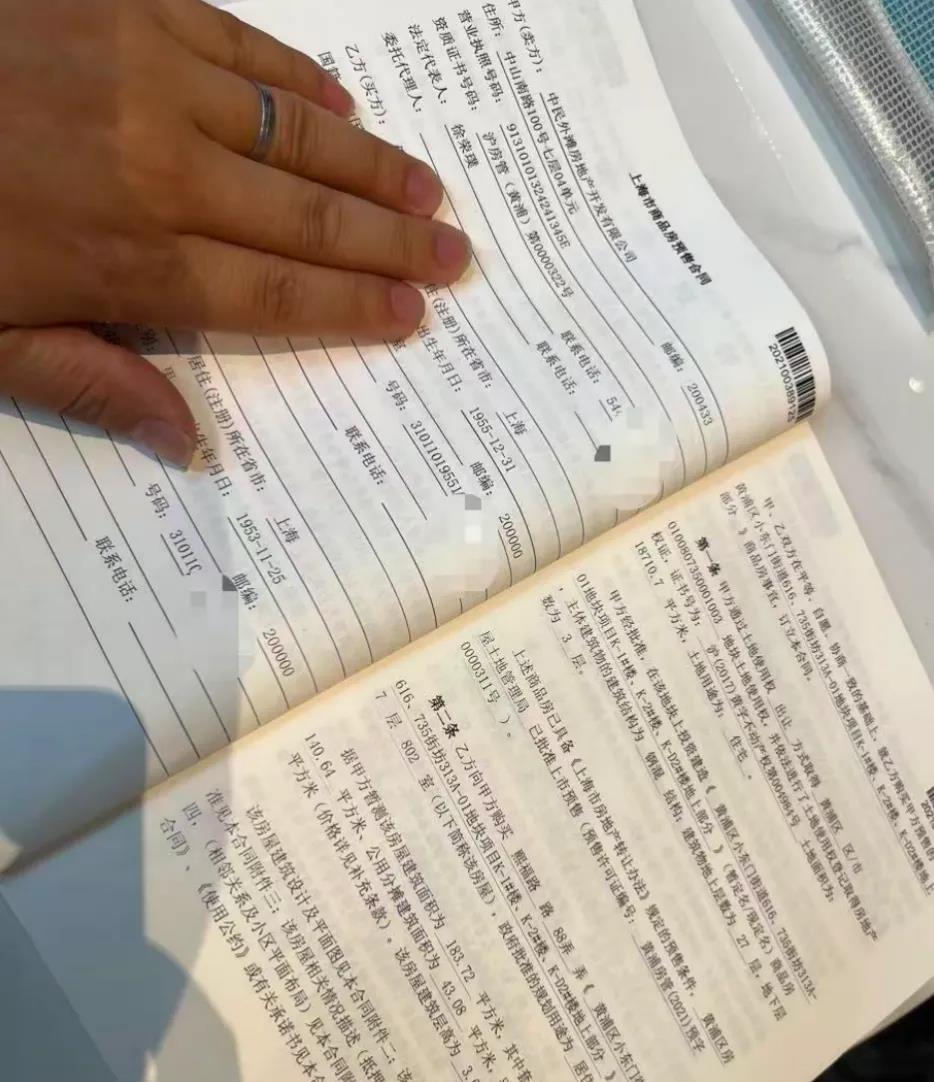 上海市商品房预售合同
甲方(卖方): 中民外滩房地产开发有限公司
住所: 中山南路100号七层04单元 邮编: 200433
营业执照号码: 91310101324241345E
资质证书号码: 沪房管(黄浦)第0000322号 联系电话: 54
法定代表人: 徐荣璞 联系电话:
委托代理人:
乙方(买方):
住(注册)所在省市: 上海
出生年月日: 1955-12-31
邮编: 200000
号码: 3101101955
联系电话:
居住(注册)所在省市: 上海
年月日: 1953-11-25
邮编: 200000
号码: 31011
联系电话:
甲、乙双方在平等、自愿、协商一致的基础上,就乙方购买甲方预售的
黄浦区小东门街道616、735街坊313A-01地块项目K-1#楼、K-2#楼、K-D2#楼地上
部分 》商品房事宜,订立本合同。
第一条 甲方通过土地使用权 出让 方式取得 黄浦区 区/市
01008073500001003 地块土地使用权,并依法进行了土地使用权登记取得房地产
权证,证书号为: 沪(2017)黄字不动产权第004964号 土地面积为:
18710.7 平方米,土地用途为: 住宅 。
甲方经批准,在该地块上投资建造《 黄浦区小东门街道616、735街坊313A-
01地块项目K-1#楼、K-2#楼、K-D2#楼地上部分 》(暂定名/现定名)商品房
,主体建筑物的建筑结构为 钢混 结构;建筑物地上层数为 27 层,地下层
数为 3 层。
上述商品房已具备《上海市房地产转让办法》规定的预售条件, 黄浦区房
屋土地管理局 已批准上市预售(预售许可证编号: 黄浦房管(2021)预字
0000311号 )。
第二条 乙方向甲方购买 熙福路 路 88弄 弄《 黄浦区小东门
616、735街坊313A-01地块项目K-1#楼、K-2#楼、K-D2#楼地上部分 》
7 层 802 室(以下简称该房屋),政府批准的规划用途为 居住
据甲方暂测该房屋建筑面积为 183.72 平方米,其中套
140.64 平方米、公用分摊建筑面积为 43.08 平方米,
平方米(价格详见补充条款)。该房屋建筑层高为 3.
该房屋建筑设计及平面图见本合同附件二;该
准见本合同附件三;该房屋相关情况描述(抵押
四,(相邻关系及小区平面布局)见本合同附
合同》、《使用公约》或有关承诺书见本